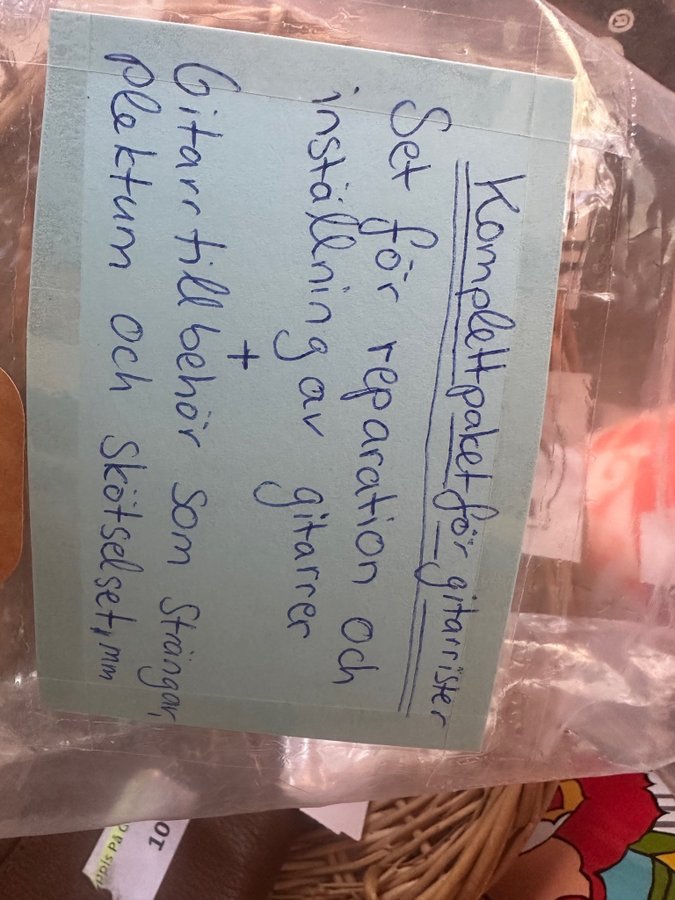 Komplettpaket för gitarrister
Set för reparation och
inställning av gitarrer
+
Gitarrtillbehör som Strängar,
plektum och skötselset, mm
10